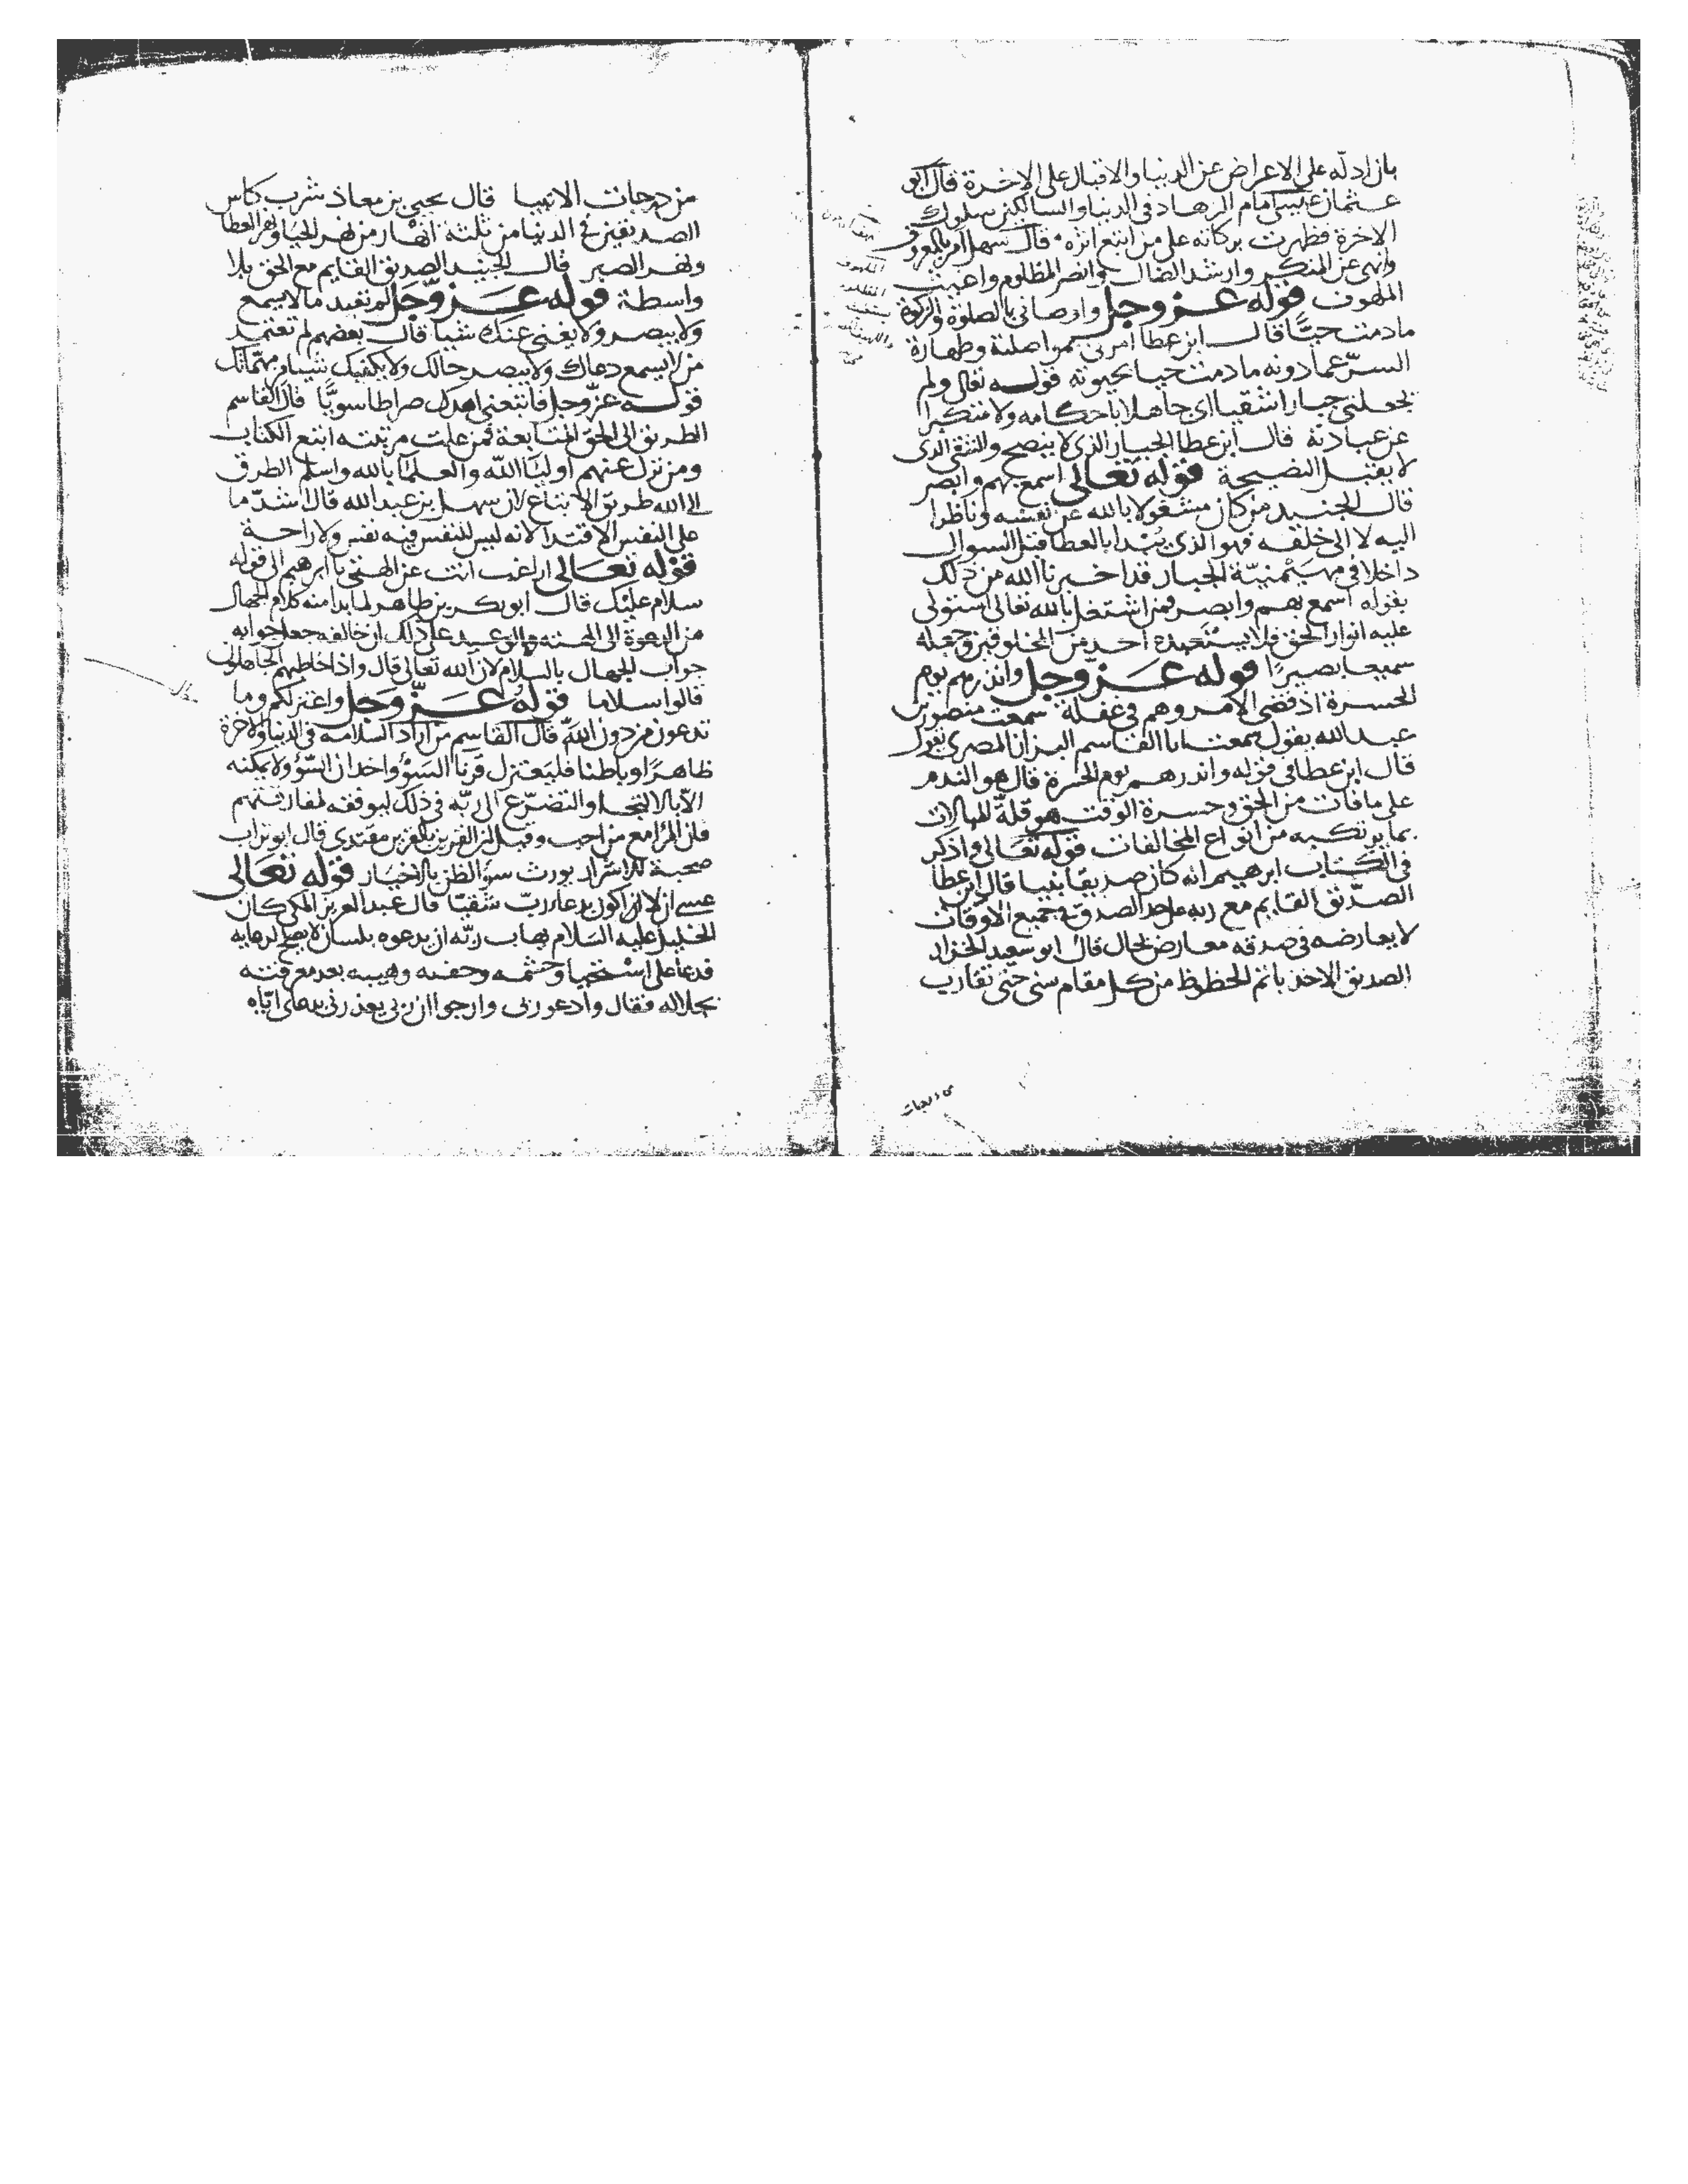 بان ادلّه على الاعراض عن الدنيا والاقبال على الاخرة قال ابو
عثمان عيسى امام الزهاد في الدنيا والسالكين سلوك
الاخرة فظهرت بركاته على من اتبع اثره قال سهل آمر بالمعروف
وانهى عن المنكر وارشد الضال وانصر المظلوم واغيث
الملهوف قوله عز وجل واوصاني بالصلوة والزكوة
ما دمت حيًّا قال ابن عطا امرني بمواصلته وطهارة
السرّ عما دونه ما دمت حيا بحيوته قوله تعالى ولم
يجعلني جبارا شقيا اي جاهلا باحكامه ولا متكبرا
عن عبادته قال ابن عطا الجبار الذي لا ينصح والشقي الذي
لا يقبل النصيحة قوله تعالى اسمع بهم وابصر
قال الجنيد من كان مشغولا بالله عن نفسه وناظرا
اليه لا الى خلقه فهو الذي يُبْدا بالعطا قبل السوال
داخلا في مهيمنيّة الجبار قد اخبرنا الله من ذلك
بقوله اسمع بهم وابصر فمن اشتغل بالله تعالى استولى
عليه انوار الحق فلا يستعبده احد من المخلوقين وجعله
سميعا بصيرًا قوله عزّ وجل وانذرهم يوم
الحسرة اذ قضى الامر وهم في غفلة سمعت منصور بن
عبد الله يقول سمعت ابا القاسم البزاز المصري يقول
قال ابن عطا في قوله وانذرهم يوم الحسرة قال هو الندم
على ما فات من الحق وحسرة الوقت هو قلّة المبالات
بما يرتكبه من انواع المخالفات قوله تعالى واذكر
في الكتاب ابرهيم انه كان صديقا نبيا قال ابن عطا
الصدّيق القايم مع ربه على حد الصدق في جميع الاوقات
لا يعارضه في صدقه معارض بحال قال ابو سعيد الخراز
الصديق الاخذ باتم الحظوظ من كل مقام سني حتى تقارب
من درجات
من درجات الانبيا قال يحيى بن معاذ شرب كاس
الصديقين في الدنيا من ثلثة انهار من نهر الحيا ونهر العطا
ونهر الصبر قال الجنيد الصديق القايم مع الحق بلا
واسطة قوله عزّ وجل لم تعبد ما لا يسمع
ولا يبصر ولا يغني عنك شيا قال بعضهم لم تعتمد
من لا يسمع دعاك ولا يبصر حالك ولا يكفيك شيا من مهماتك
قوله عزّ وجل فاتبعني اهدك صراطا سويًّا قال القاسم
الطريق الى الحق المتابعة فمن علت مرتبته اتبع الكتاب
ومن نزل عنهم اوليا الله والعلما بالله واسلم الطرق
الى الله طريق الاتباع لان سهل بن عبد الله قال اشدّ ما
على النفس الاقتدا لانه ليس للنفس فيه نفس ولا راحة
قوله تعالى اراغب انت عن الهتي يا ابرهيم الى قوله
سلام عليك قال ابو بكر بن طاهر لما بدا منه كلام الجهال
من الدعوة الى الهته والوعيد على ذلك ان خالفه جعل جوابه
جواب الجهال بالسلام لان الله تعالى قال واذا خاطبهم الجاهلون
قالوا سلاما قوله عزّ وجل واعتزلكم وما
تدعون من دون الله قال القاسم من اراد السلامة في الدنيا والاخرة
ظاهرًا وباطنا فليعتزل قرنا السَوْء واخدان السّوء ولا يمكنه
الا بالالتجا والتضرّع الى ربّه في ذلك ليوفقه لمفارقتهم
فان المرء مع من احب وقيل ان القرين بالقرين مقتدي قال ابو تراب
صحبة الاشرار يورث سوء الظن بالاخيار قوله تعالى
عسى ان لا اكون بدعاء ربّ شقيّا قال عبد العزيز المكي كان
الخليل عليه السلام يهاب ربّه ان يدعوه بلسان لا يصلح لدعايه
فدعا على استحيا وحشمه وهيبه بعد معرفته
بجلاله فقال وادعو ربي وارجوا ان ربي يعذرني بدعاى ايّاه